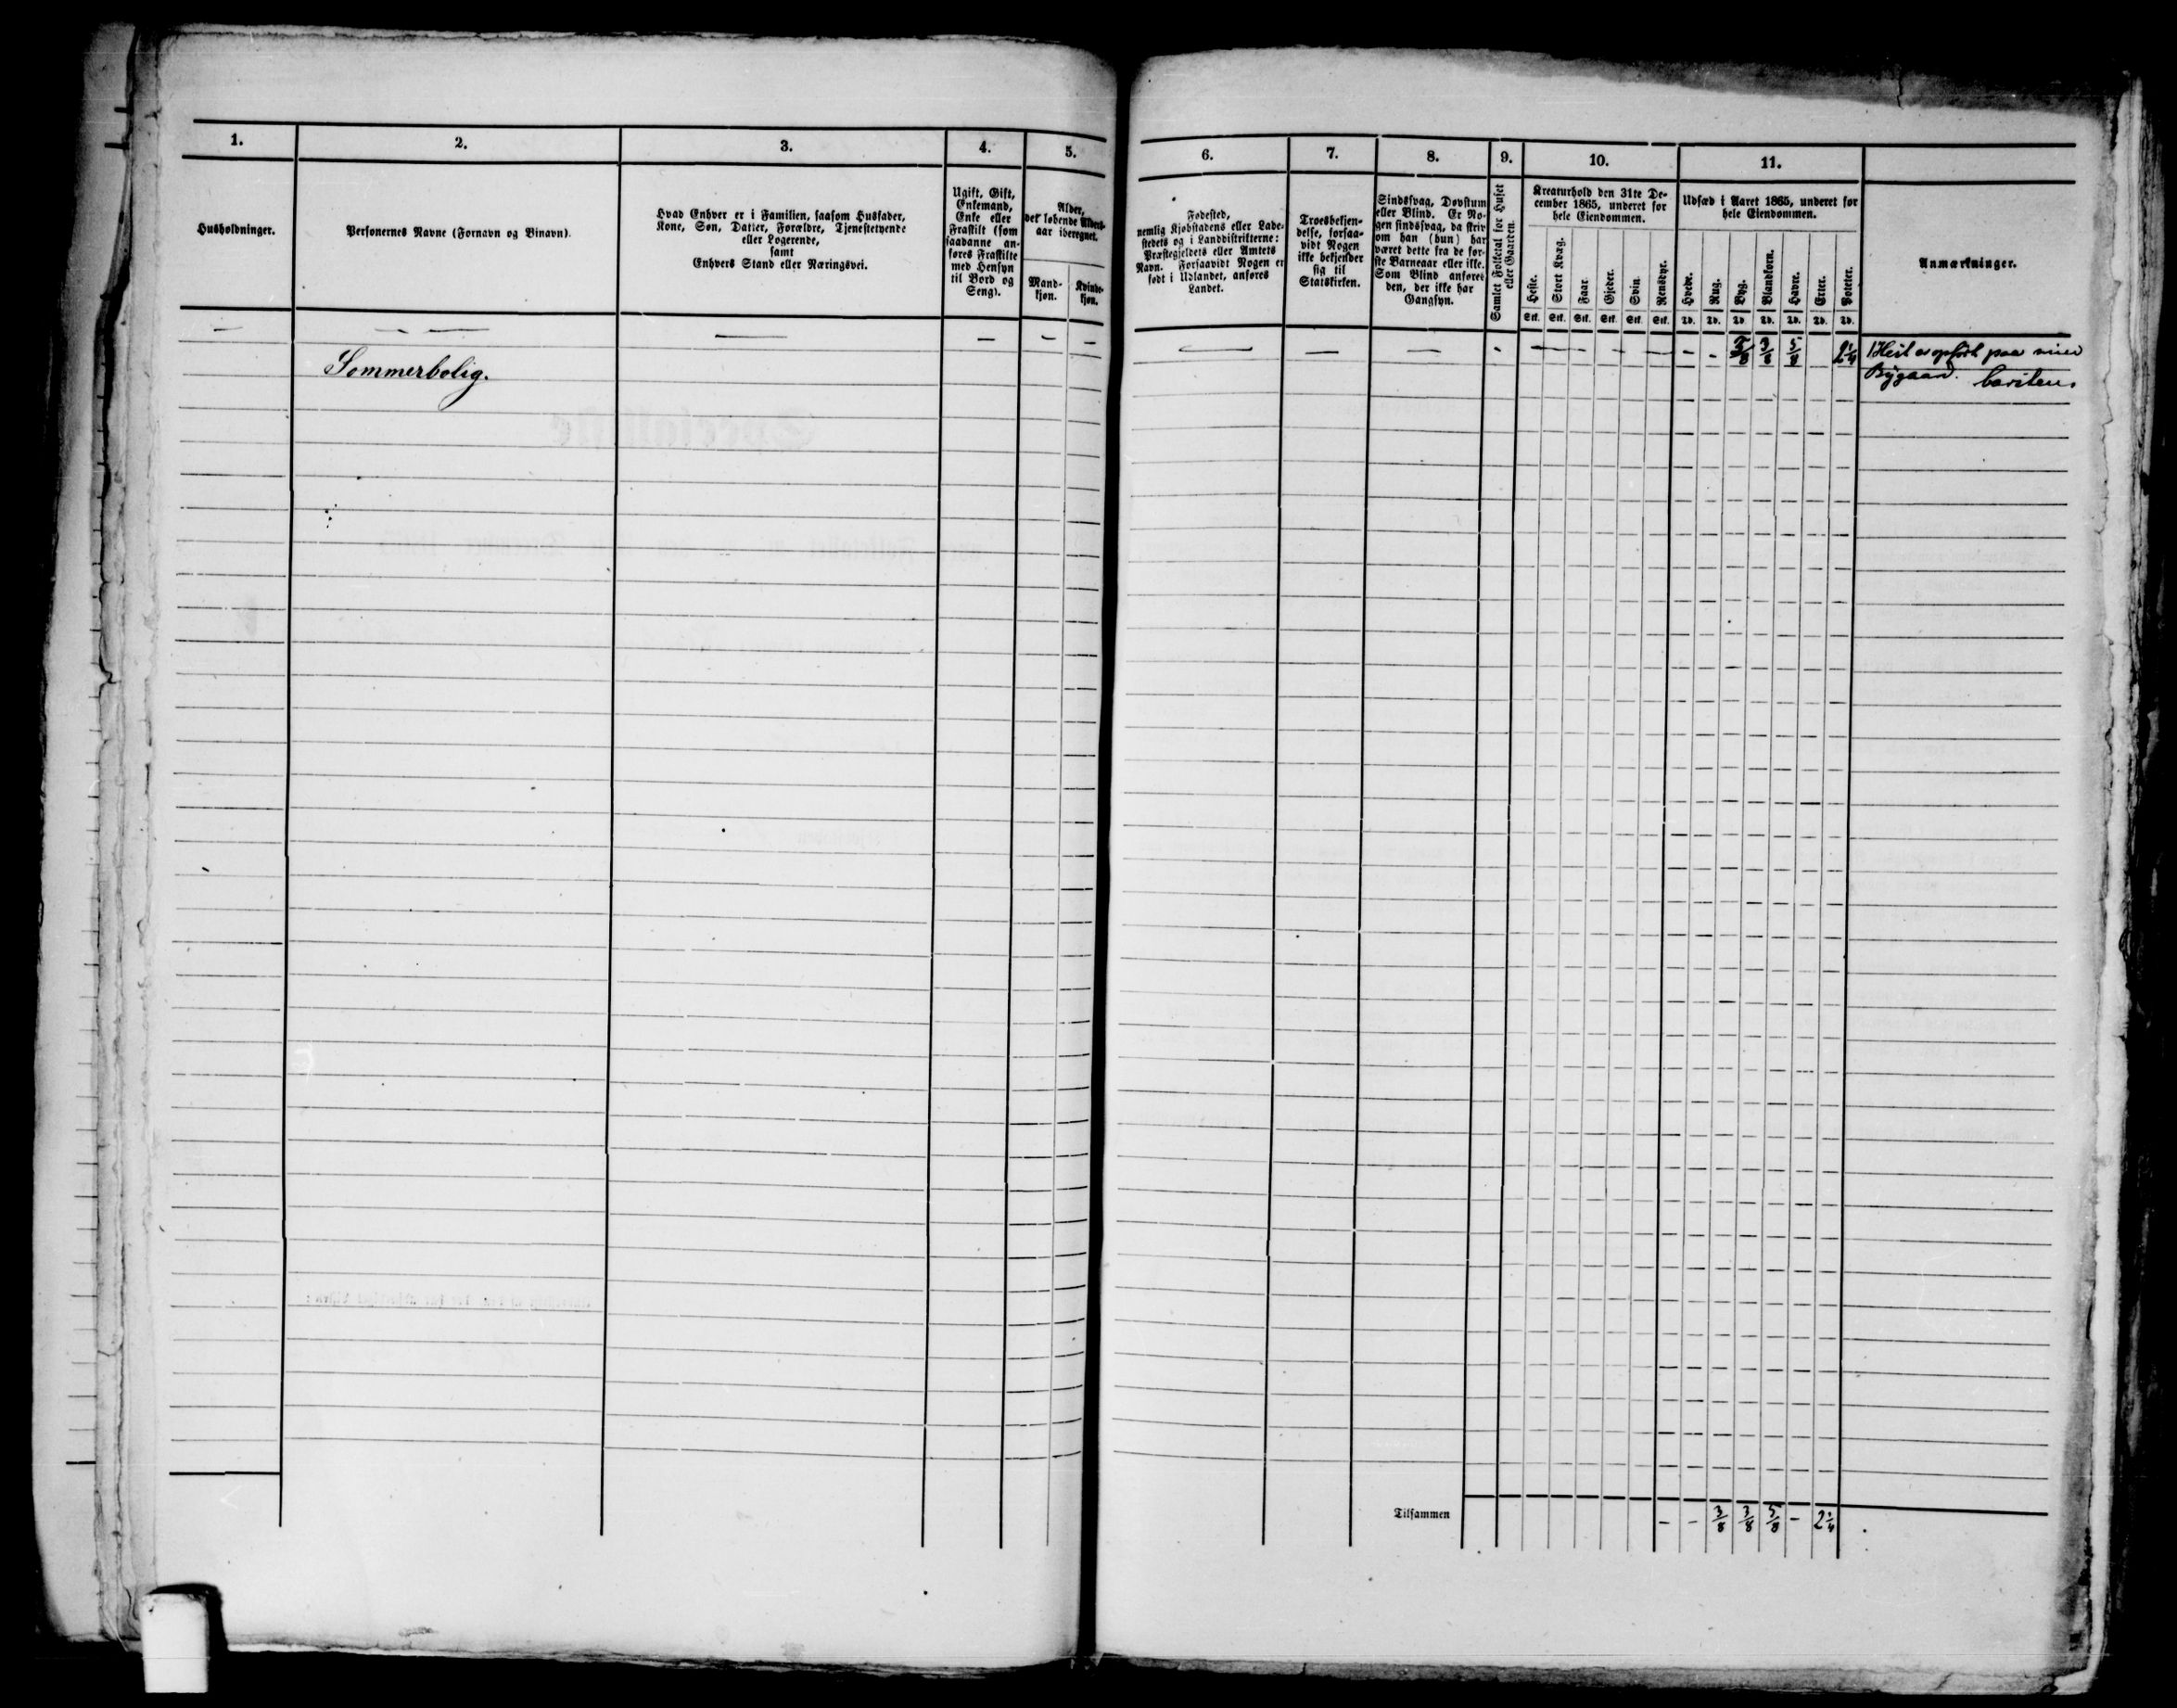 1.
2.
3.
4.
5.
Husholdninger.
Personernes Navne (Fornavn og Binavn).
Hvad Enhver er i Familien, saasom Husfader,
Kone, Søn, Datter, Forældre, Tjenestetyende
eller Logerende,
samt
Enhvers Stand eller Næringsvei.
Ugift, Gift,
Enkemand,
Enke eller
Fraskilt (som
saadanne an-
føres Fraskilte
med Hensyn
til Bord og
Seng).
Alder,
det løbende Alders-
aar iberegnet.
Mand-
kjøn.
Kvinde-
kjøn.
— — — — — — —
Sommerbolig.
6.
7.
8.
9.
10.
11.
Fødested,
nemlig Kjøbstadens eller Lade-
stedets og i Landdistrikterne:
Præstegjeldets eller Amtets
Navn. Forsaavidt Nogen er
født i Udlandet, anføres
Landet.
Troesbekjen-
delse, forsaa-
vidt Nogen
ikke bekjender
sig til
Statskirken.
Sindssvag, Døvstum
eller Blind. Er No-
gen sindssvag, da skriv
om han (hun) har
været dette fra de før-
ste Barneaar eller ikke.
Som Blind anføres
den, der ikke har
Gangsyn.
Samlet Folketal for Huset
eller Gaarden.
Kreaturhold den 31te De-
cember 1865, underet for
hele Eiendommen.
Heste.
Stort Kvæg.
Faar.
Gjeder.
Svin.
Rensdyr.
Stk. Stk. Stk. Stk. Stk. Stk.
Udsæd i Aaret 1865, underet for
hele Eiendommen.
Hvede.
Rug.
Byg.
Blandkorn.
Havre.
Erter.
Poteter.
Td. Td. Td. Td. Td. Td. Td.
Anmærkninger.
— — — - — — — — — - - 3/8 3/8 5/8 2 1/4 1 Hest er opført paa min
Bygaard.
Tilsammen - - 3/8 3/8 5/8 - 2 1/4